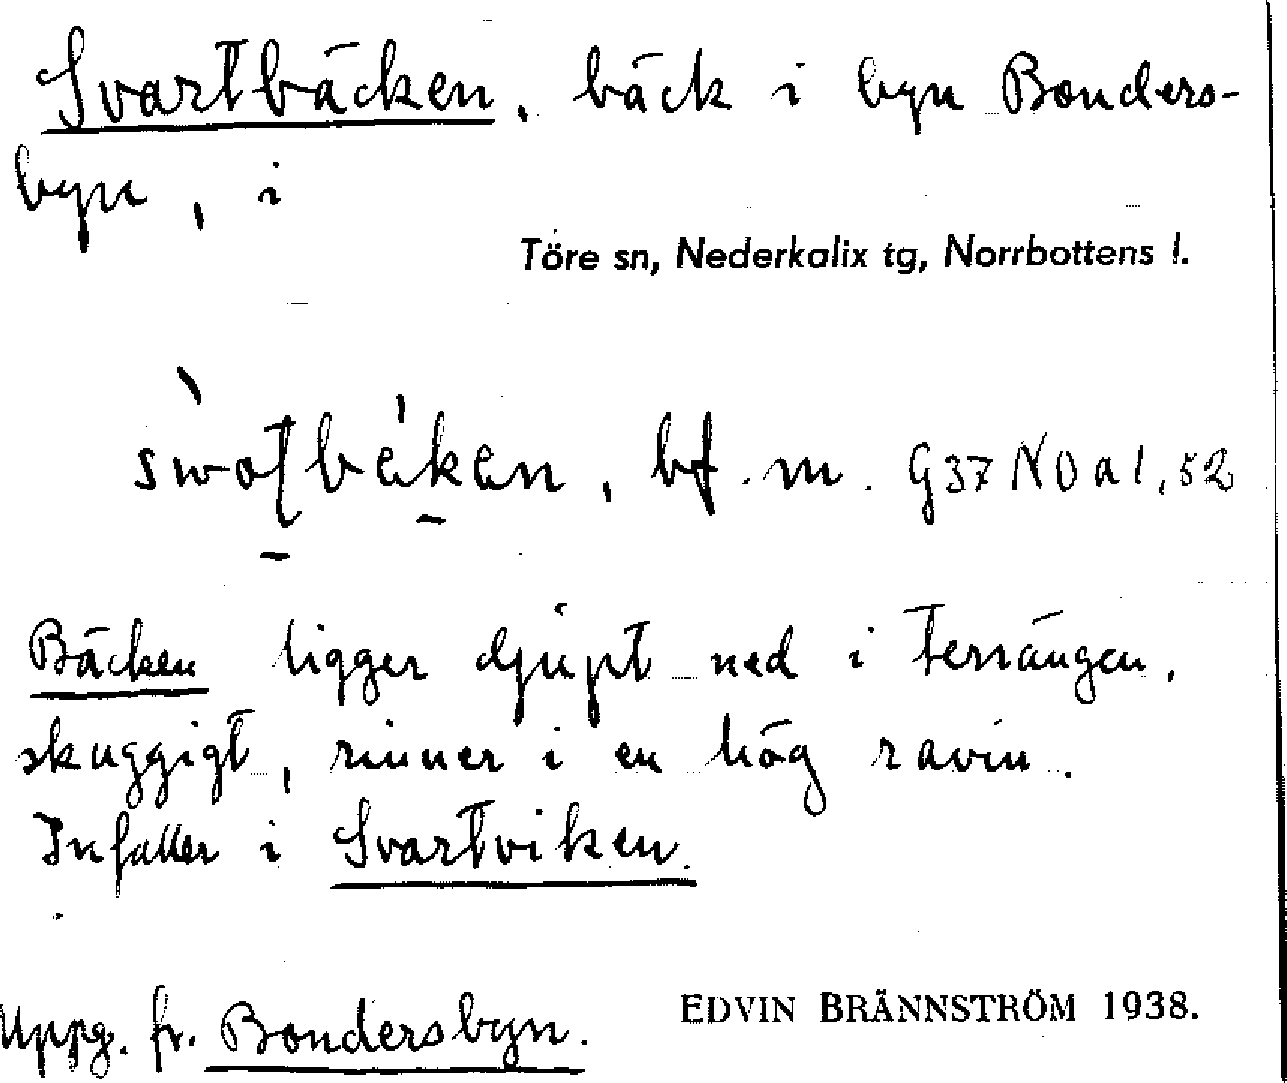 Svartbäcken, bäck i byn Bonders-
byn, i
Töre sn, Nederkalix tg, Norrbottens l.
bf. m. G37 NO a 1, 52
Bäcken ligger djupt ned i terrängen,
skuggigt, rinner i en hög ravin.
Infaller i Svartviken.
Uppg. fr. Bondersbyn.
EDVIN BRÄNNSTRÖM 1938.